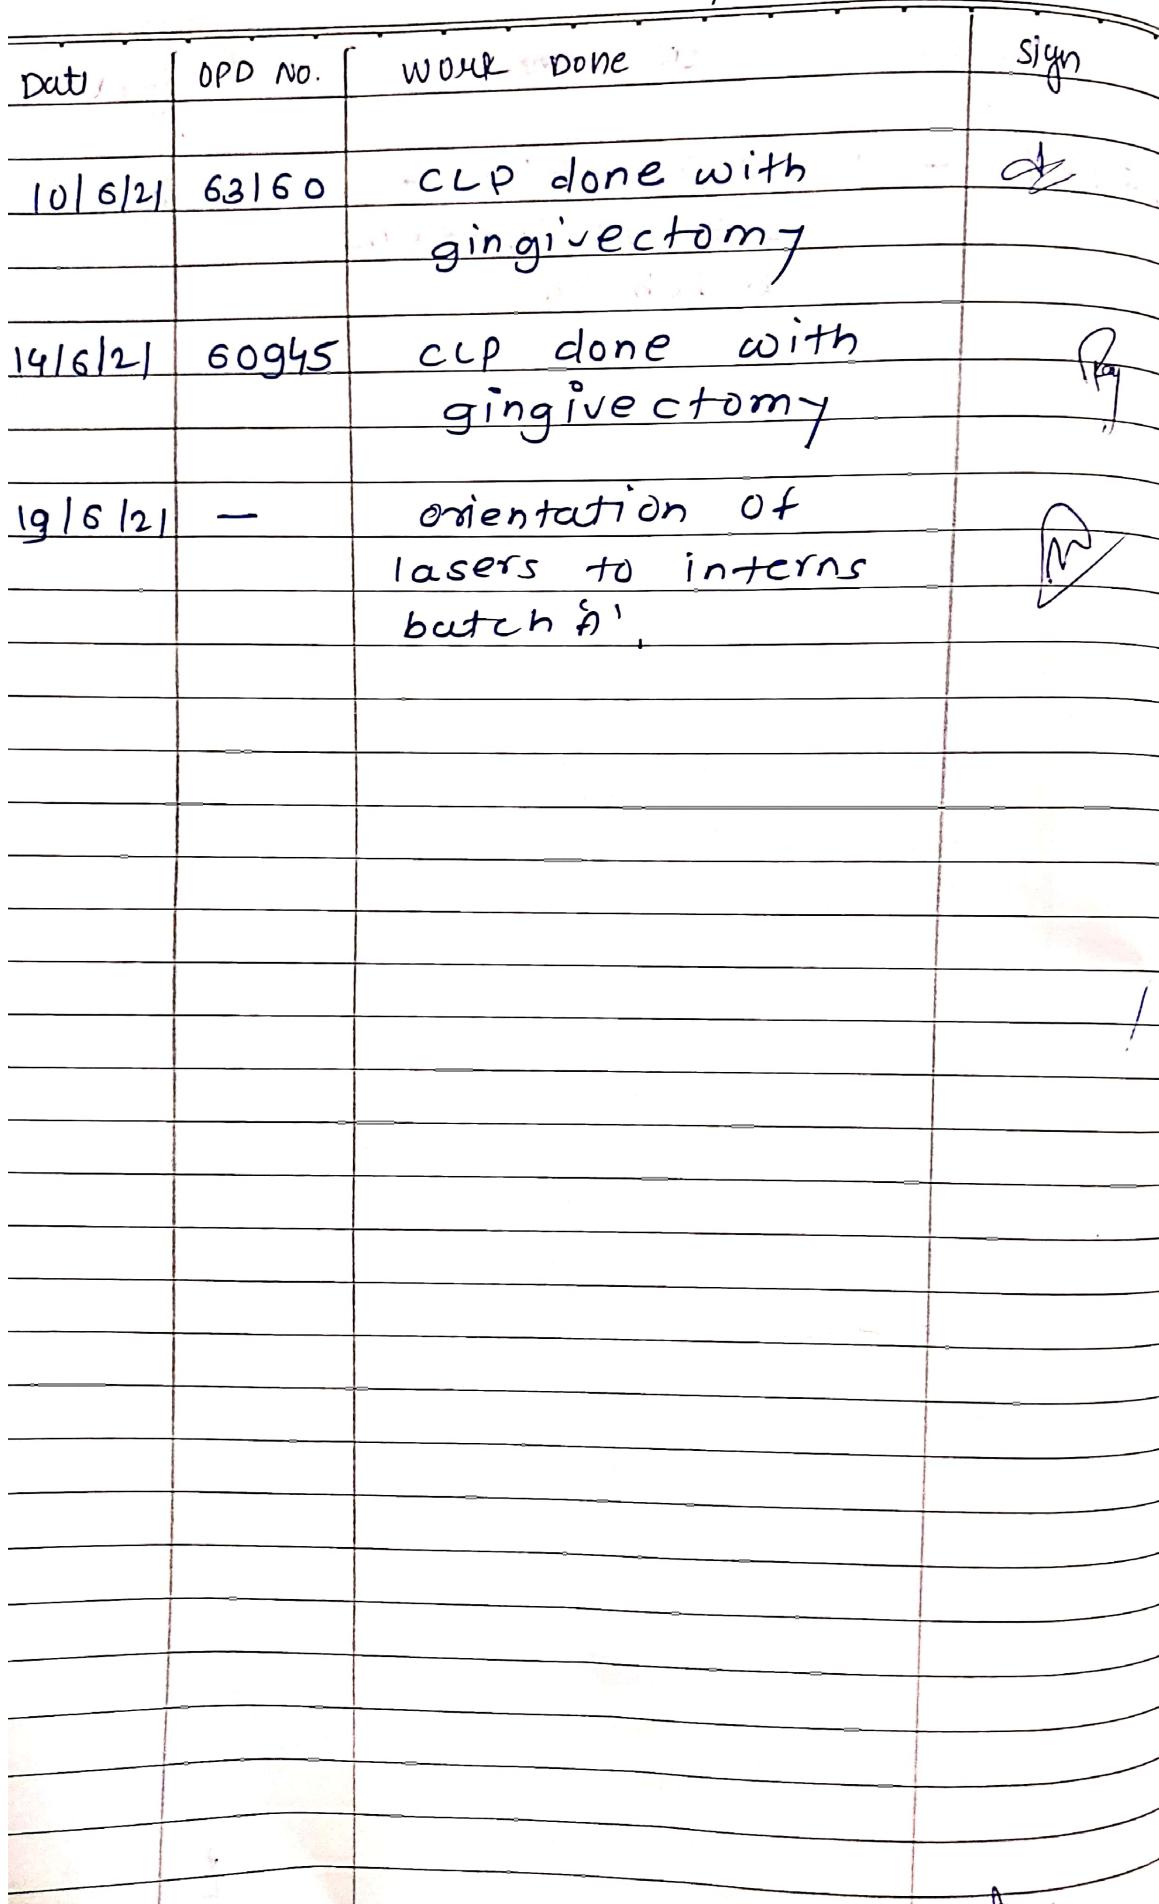 Date OPD No. Work Done Sign
10/6/21 63160 CLP done with
gingivectomy
14/6/21 60945 CLP done with
gingivectomy
19/6/21 — orientation of
lasers to interns
batch 'A'.